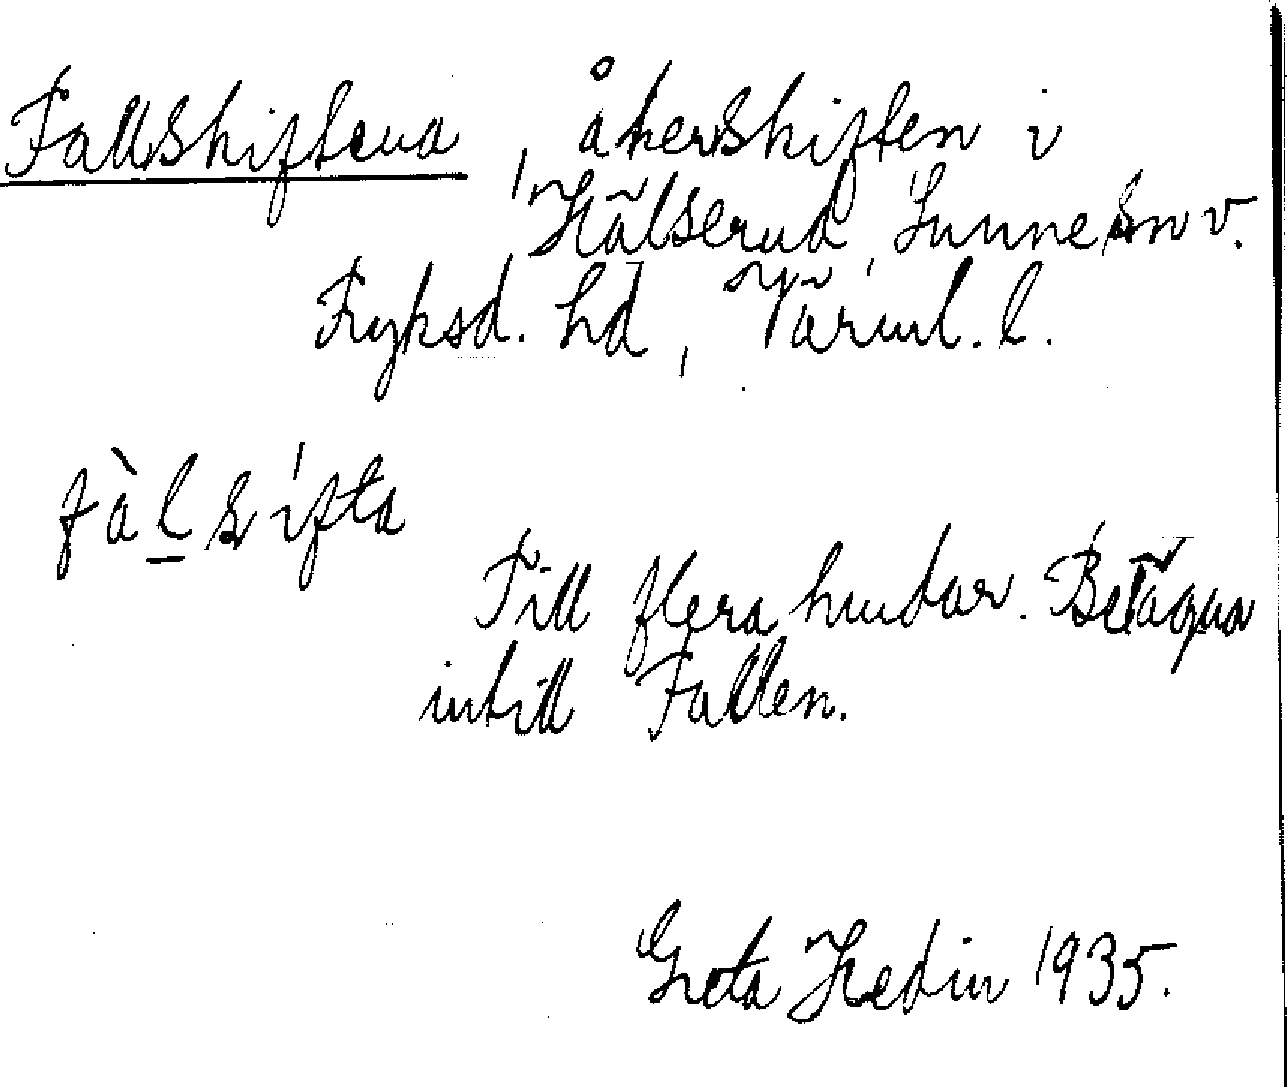 Fallskiftena, åkerskiften i
Hälserud, Sunne sn v.
Fryksd. hd, Värml. l.
fàlsifta
Till flera hudar. Belägna
intill Fallen.
Greta Hedin 1935.